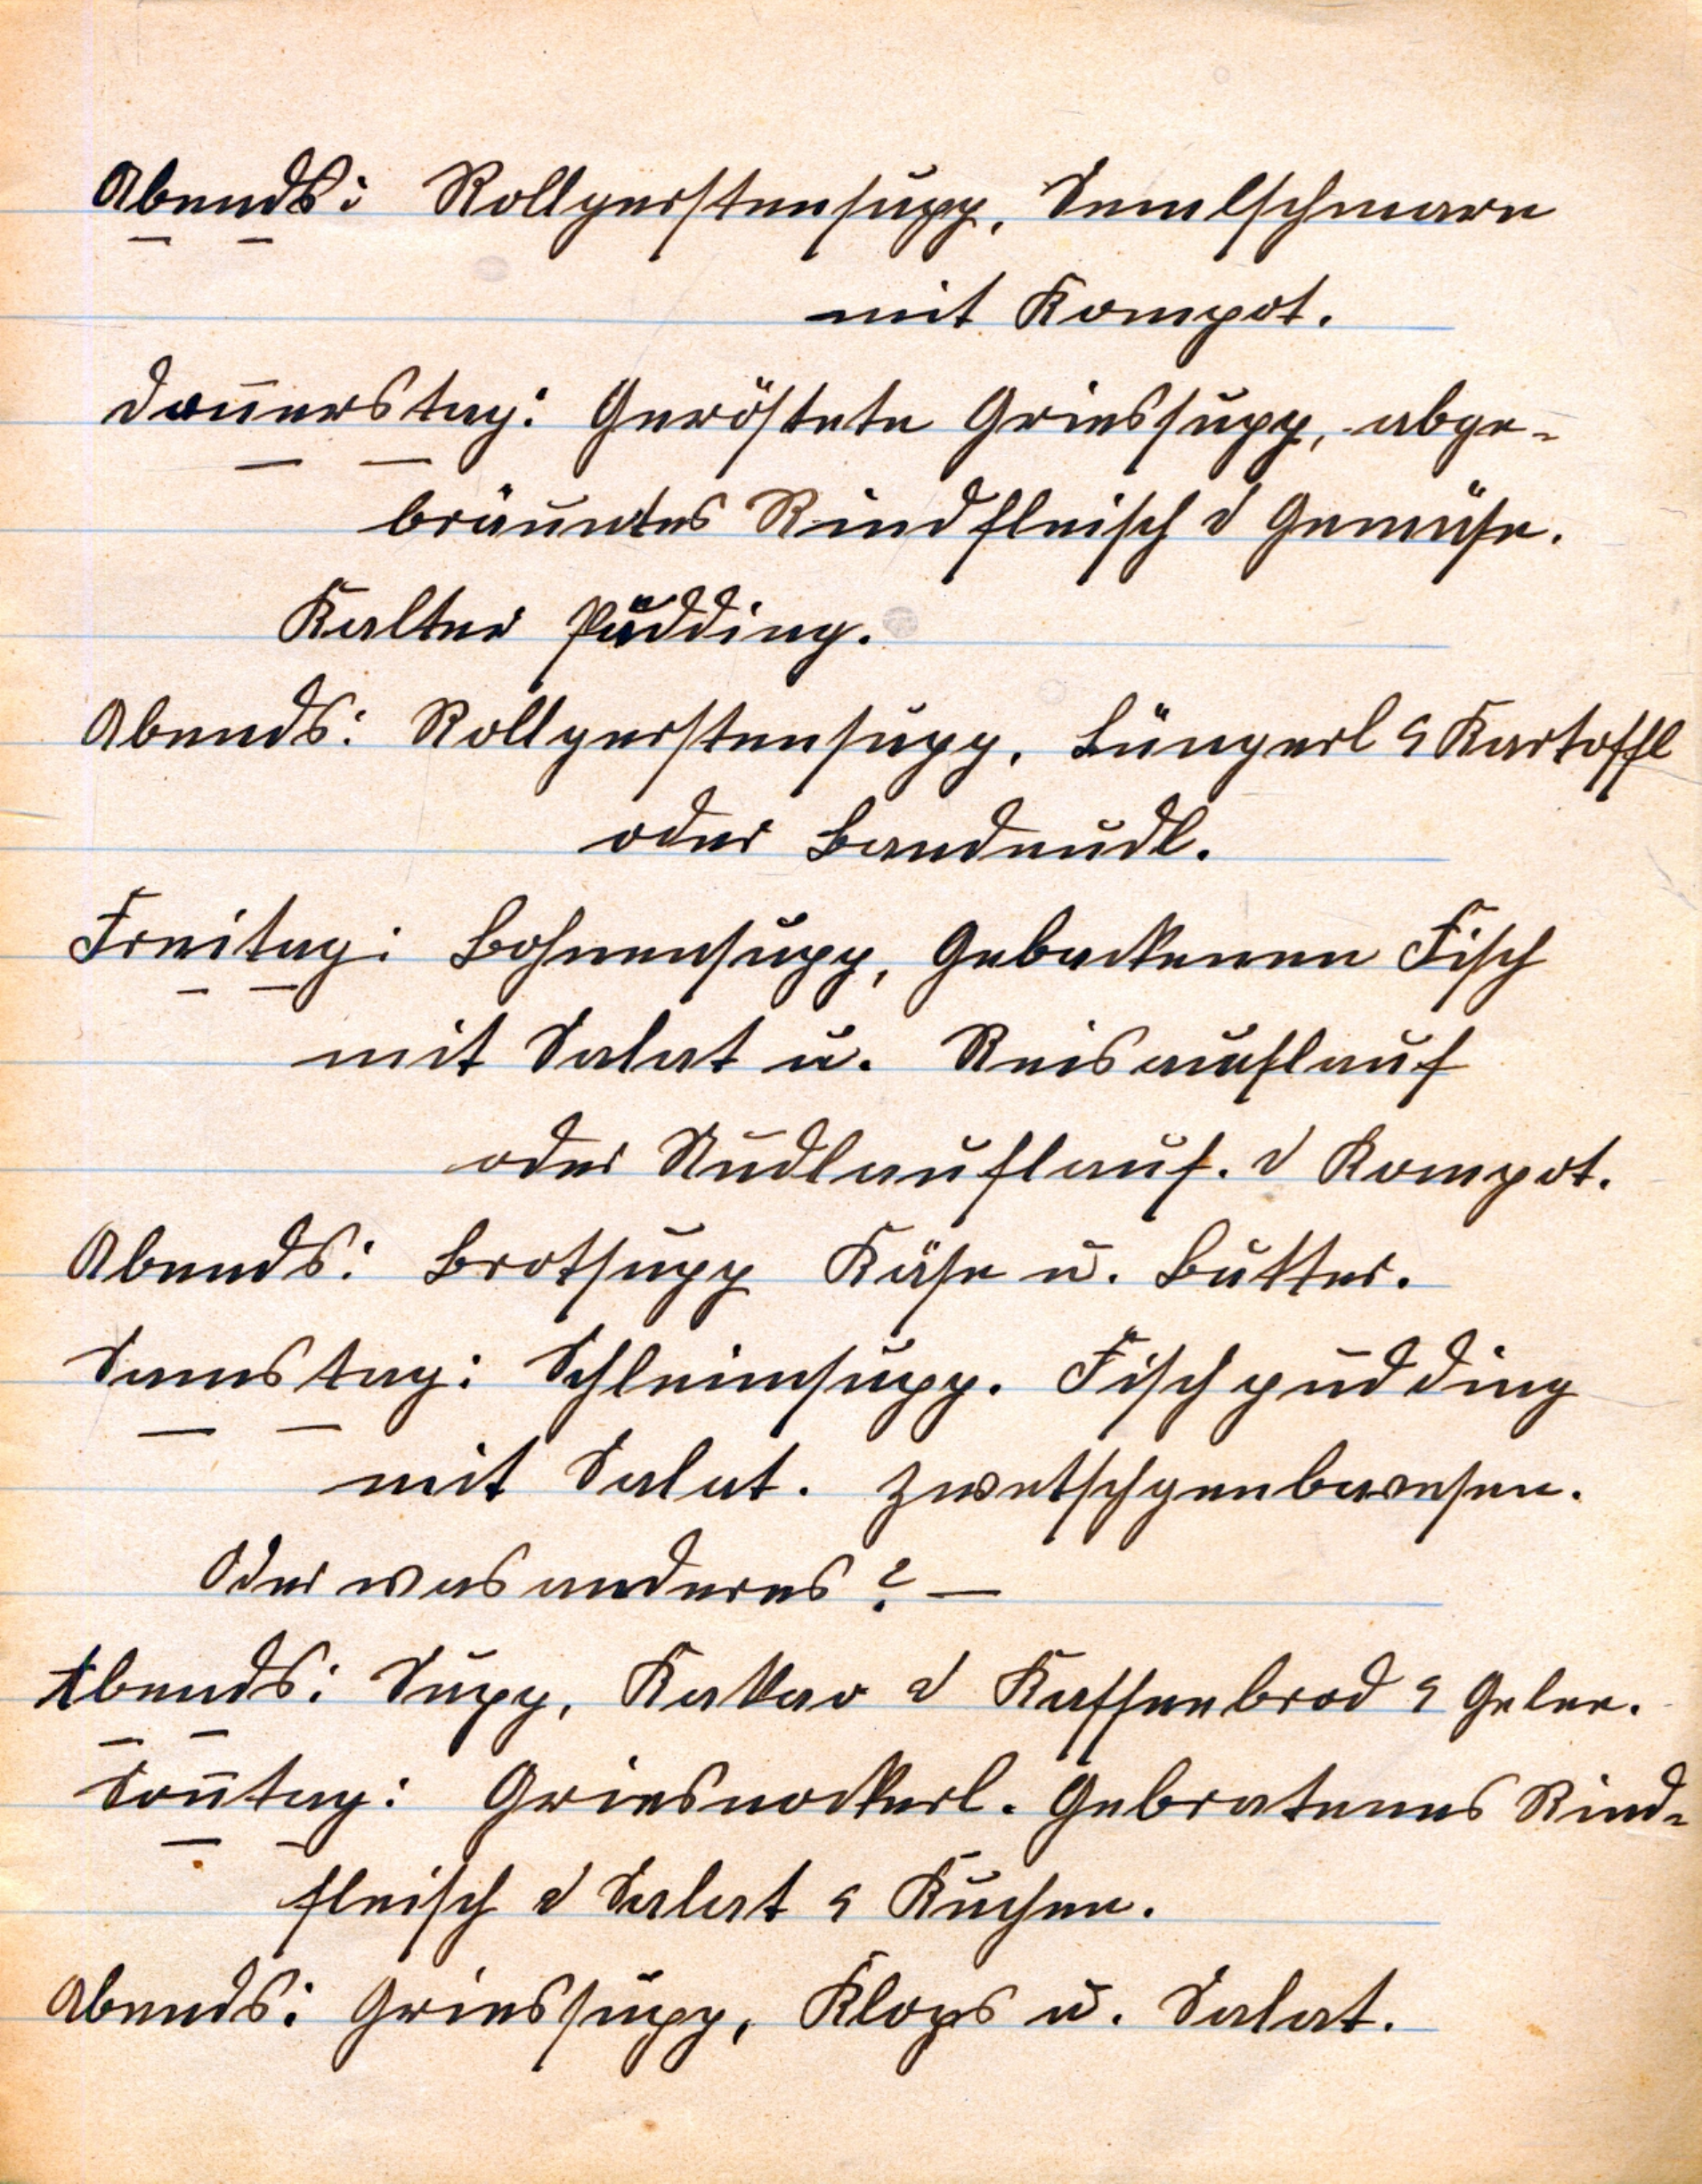 Abends: Rollgerstensupp, Semelschmarn
mit Kompot.
Don̄erstag: Geröstete Griessupp, abge-
bräuntes Rindfleisch & Gemüse.
Kalter Pudding.
Abends: Rollgerstensupp, Lüngerl & Kartoffl
oder Bandnudl.
Freitag: Bohnensupp, Gebackenen Fisch
mit Salat u. Reisauflauf
oder Nudlauflauf. & Kompot.
Abends: Brotsupp Käse u. Butter.
Samstag: Schleimsupp. Fischpudding
mit Salat. Zwetschgenbavesen.
Oder was anderes? —
Abends: Supp, Kakao & Kaffeebrod & Gelee.
Son̄tag: Griesnockerl. Gebratenes Rind-
fleisch & Salat & Kuchen.
Abends: Griessupp, Klops u. Salat.